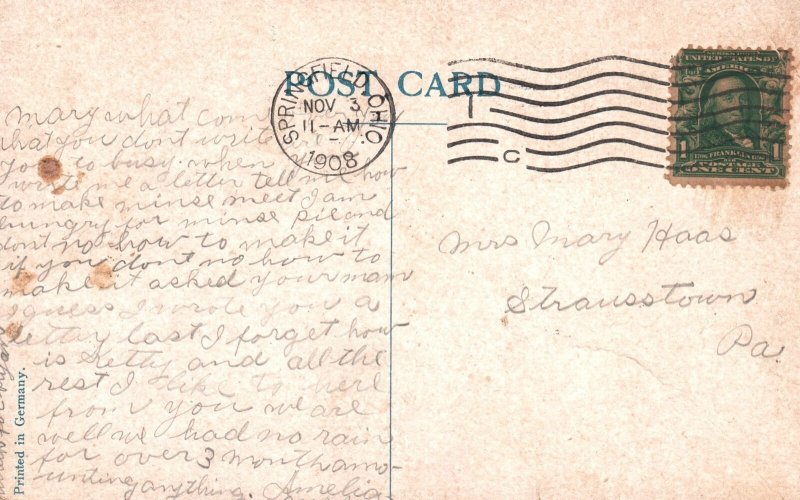 POST CARD
SPRINGFIELD, OHIO.
NOV 3
11-AM
1908
T
C
SERIES
UNITED STATES OF
AMERICA
1 FRANKLIN 1
POSTAGE
ONE CENT
Mary what
what you don't write
you to busy. when you
write me a letter tell me how
to make minse meet I am
hungry for minse pie and
dont no how to make it
if you dont no how to
make it asked your mam
I guess I wrote you a
letter last I forget how
is Letty and all the
rest I like to here
from you we are
well we had no rain
for over 3 month amo-
unting anything. Amelia
Mrs Mary Haas
Strausstown
Pa.
Printed in Germany.